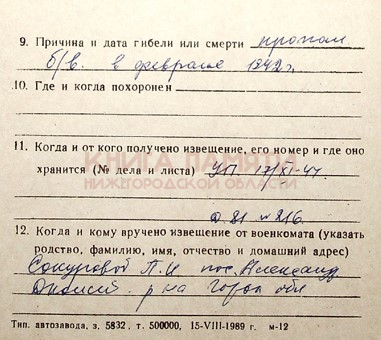 9. Причина и дата гибели или смерти пропал
б/в. в феврале 1942 г.
10. Где и когда похоронен
11. Когда и от кого получено извещение, его номер и где оно
хранится (№ дела и листа) УП. 17/XI-47.
КНИГА ПАМЯТИ
НИЖЕГОРОДСКОЙ ОБЛАСТИ
д. 21 л. 216.
12. Когда и кому вручено извещение от военкомата (указать
родство, фамилию, имя, отчество и домашний адрес)
пос.
р-на Горьк обл
Тип. автозавода, з. 5832, т. 500000, 15-VIII-1989 г. м-12